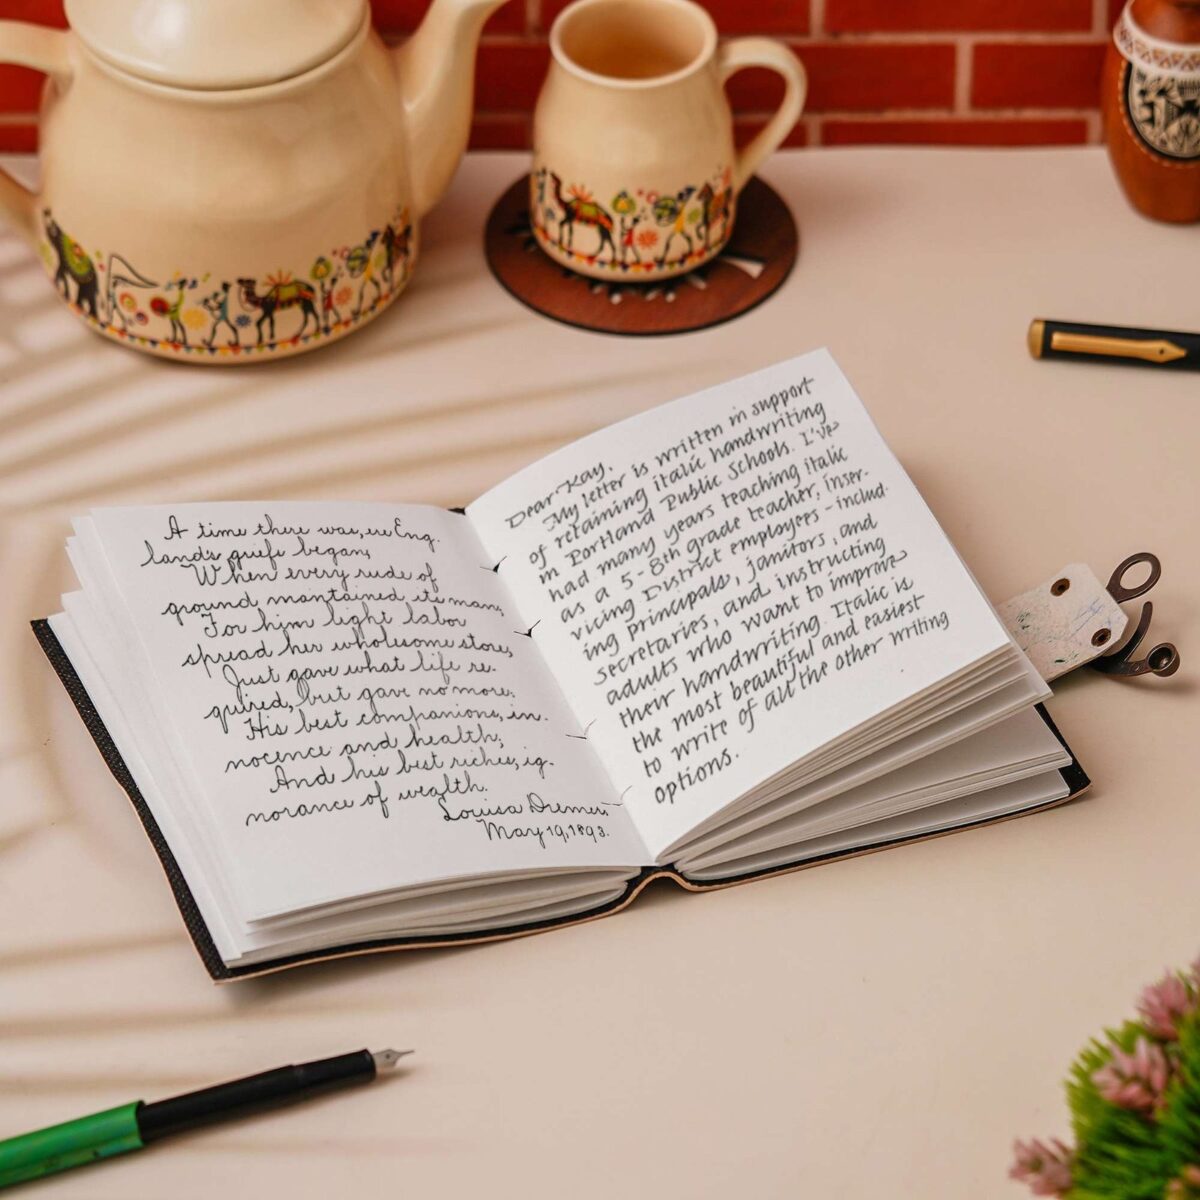 A time there was, ere Eng-
land's griefs began,
When every rude of
ground mantained its man,
For him light labor
spread her wholesome store,
Just gave what life re-
quired, but gave no more:
His best companions, in-
nocence and health;
And his best riches, ig-
norance of wealth.
Louisa
May 19, 1893.
Dear Kay,
My letter is written in support
of retaining italic handwriting
in Portland Public Schools. I've
had many years teaching italic
as a 5-8th grade teacher, inser-
vicing District employees - includ-
ing principals, janitors, and
secretaries, and, instructing
adults who want to improve
their handwriting. Italic is
the most beautiful and easiest
to write of all the other writing
options.